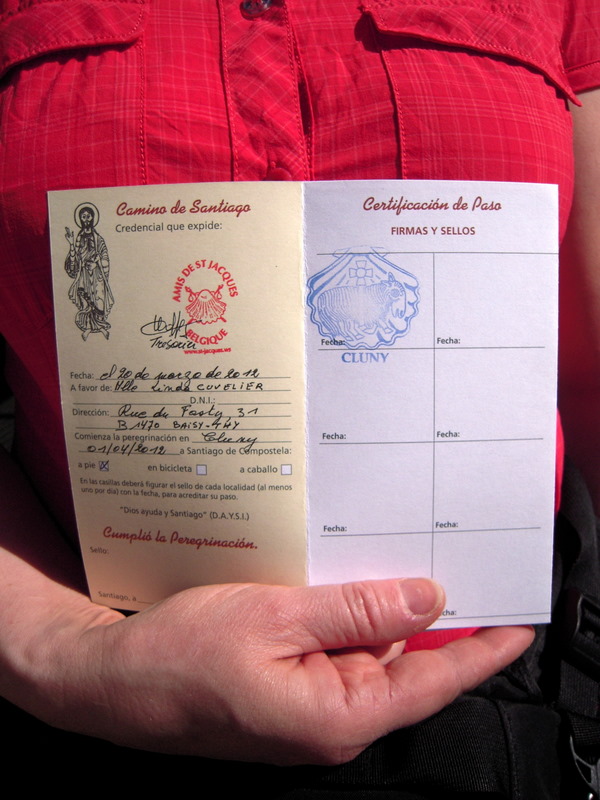 Camino de Santiago
Credencial que expide:
AMIS DE ST JACQUES
BELGIQUE
www.st-jacques.ws
Trésorier
Fecha: el 20 de marzo de 2012
A favor de: Mlle Linda CUVELIER
D.N.I.:
Dirección: Rue du Fosty, 31
B 1470 BAISY-THY
Comienza la peregrinación en Cluny
01/04/2012 a Santiago de Compostela:
a pie en bicicleta a caballo
En las casillas deberá figurar el sello de cada localidad (al menos
uno por día) con la fecha, para acreditar su paso.
"Dios ayuda y Santiago" (D.A.Y.S.I.)
Cumplió la Peregrinación.
Sello:
Santiago, a
Certificación de Paso
FIRMAS Y SELLOS
CLUNY
Fecha: Fecha:
Fecha: Fecha:
Fecha: Fecha:
cha: